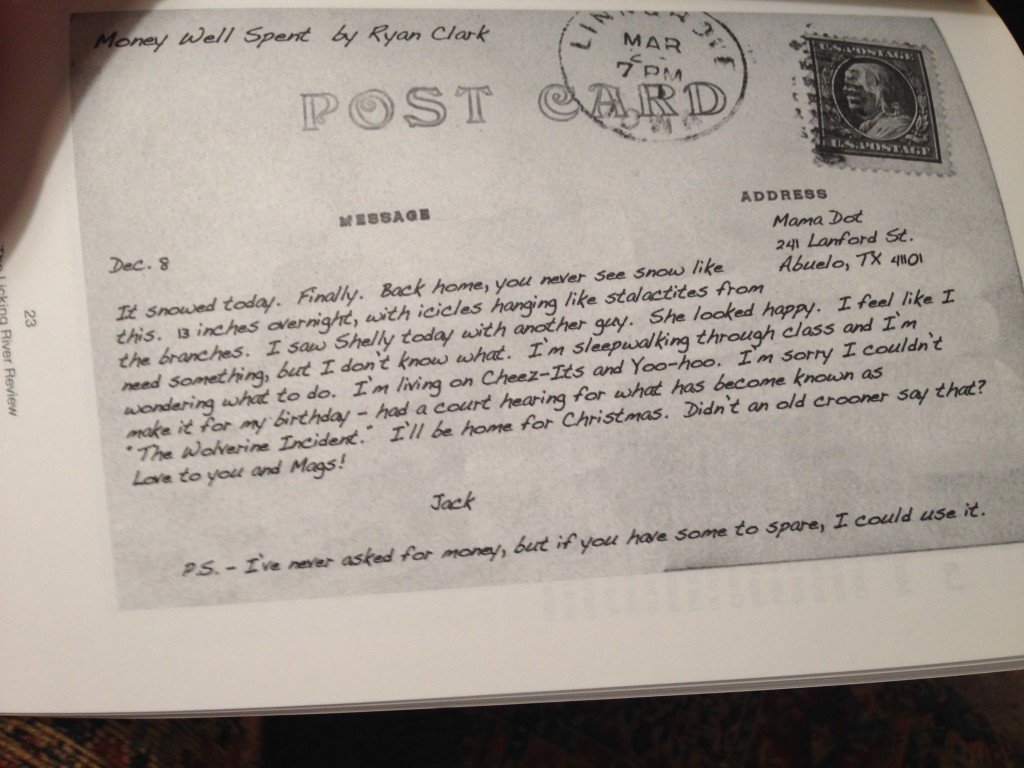 Money Well Spent by Ryan Clark
MAR
7 PM
U.S. POSTAGE
U.S. POSTAGE
POST CARD
MESSAGE
ADDRESS
Mama Dot
241 Lanford St.
Abuelo, TX 41101
Dec. 8
It snowed today. Finally. Back home, you never see snow like
this. 13 inches overnight, with icicles hanging like stalactites from
the branches. I saw Shelly today with another guy. She looked happy. I feel like I
need something, but I don't know what. I'm sleepwalking through class and I'm
wondering what to do. I'm living on Cheez-Its and Yoo-hoo. I'm sorry I couldn't
make it for my birthday - had a court hearing for what has become known as
"The Wolverine Incident." I'll be home for Christmas. Didn't an old crooner say that?
Love to you and Mags!
Jack
P.S. - I've never asked for money, but if you have some to spare, I could use it.
23
The Licking River Review